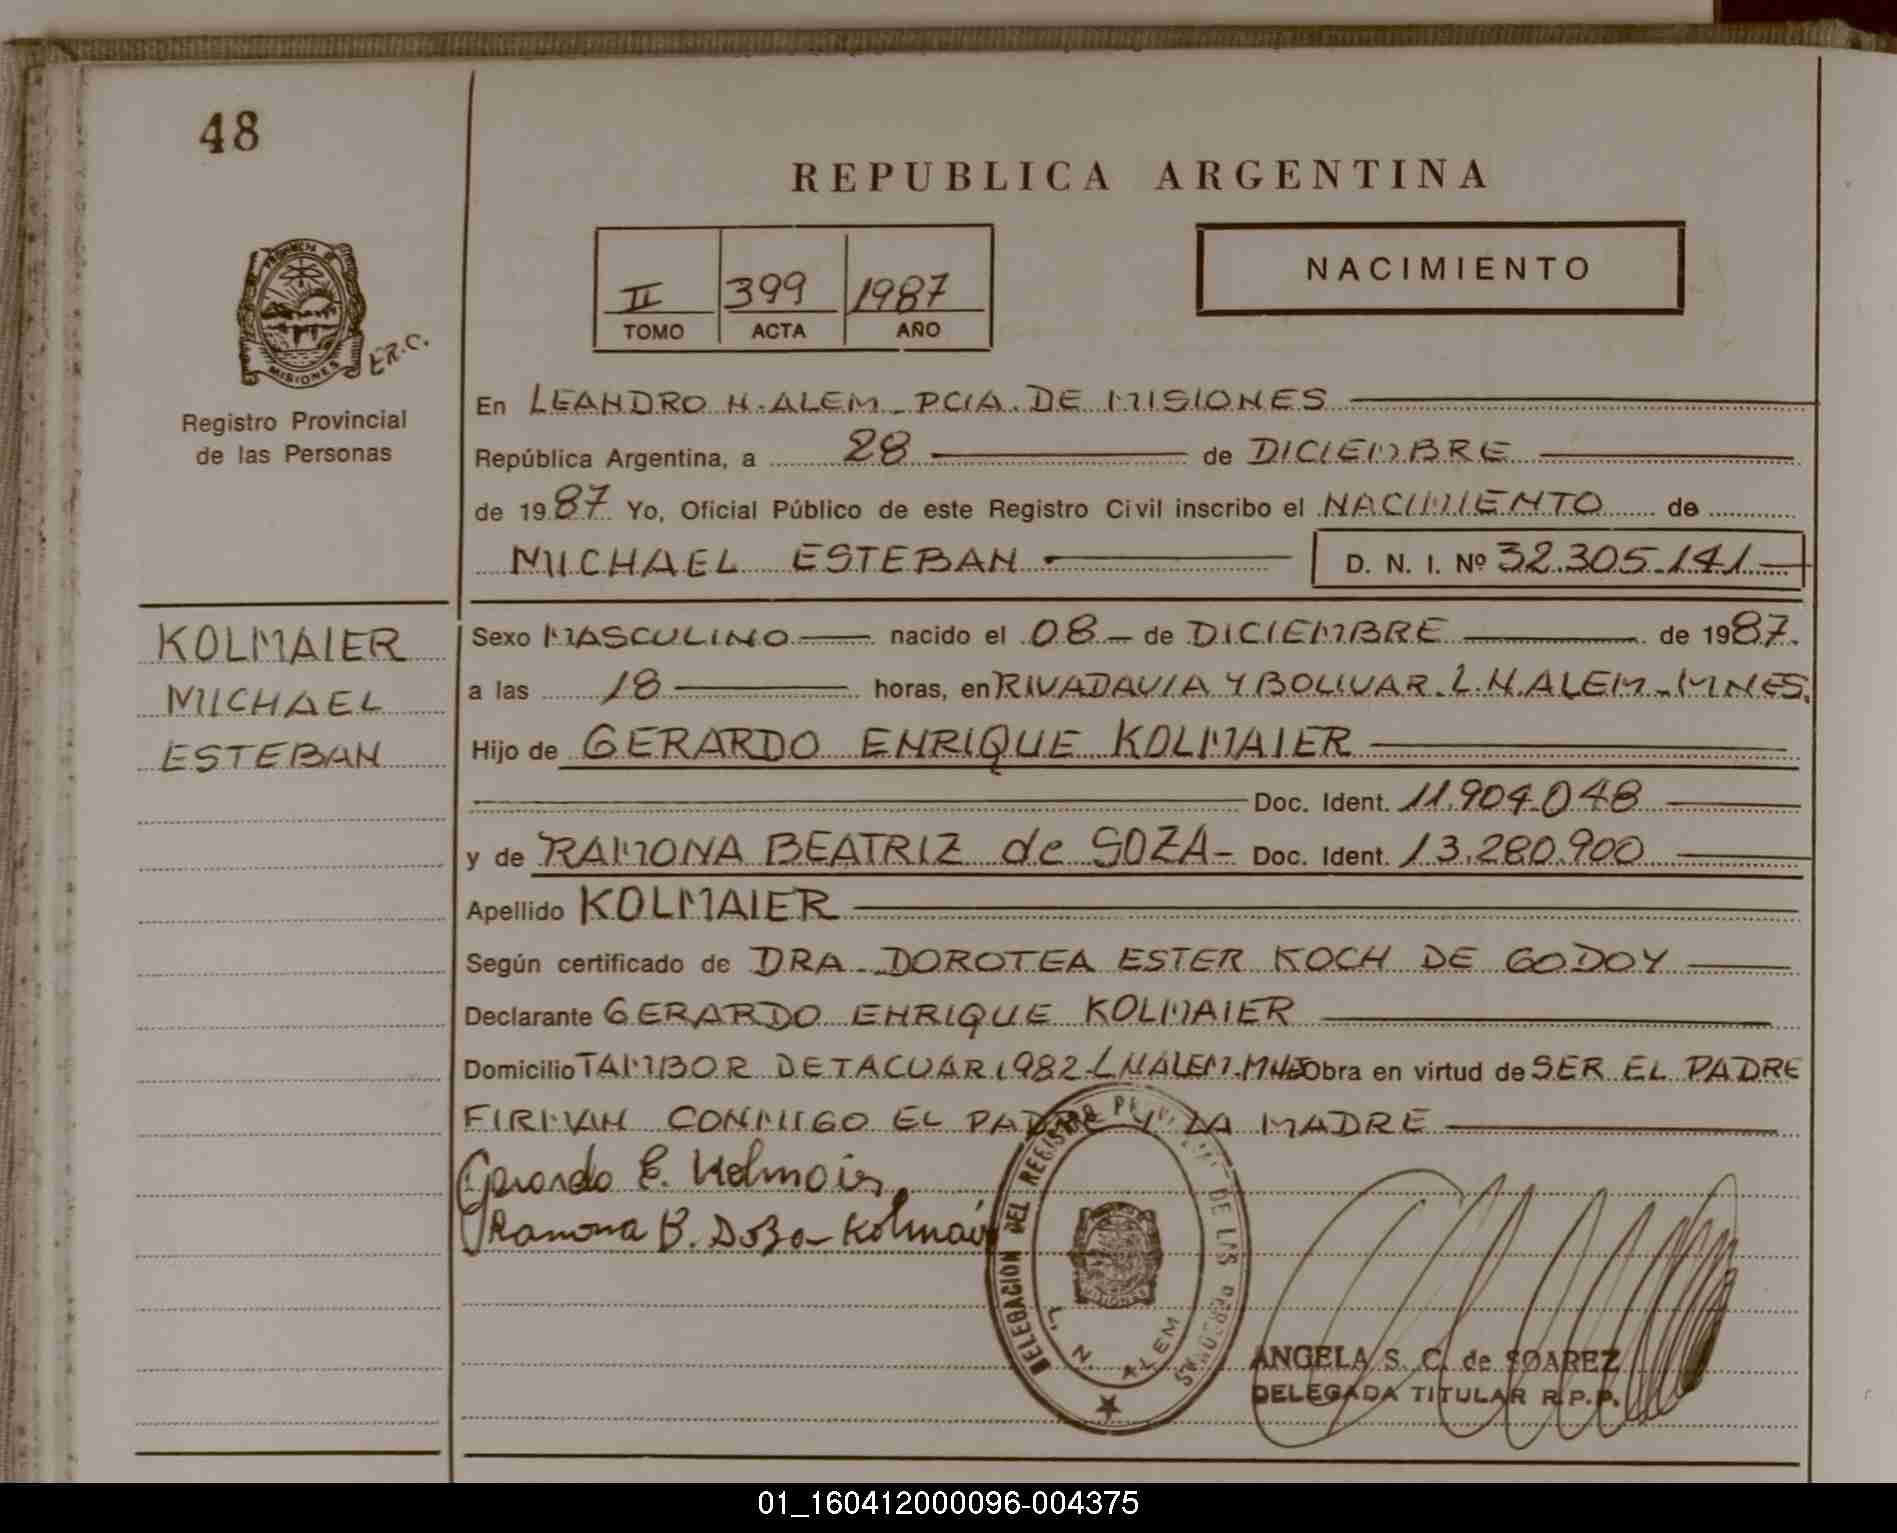 48
REPUBLICA ARGENTINA
II 399 1987
TOMO ACTA AÑO
NACIMIENTO
PROVINCIA DE
MISIONES
E.R.C.
Registro Provincial
de las Personas
En LEANDRO N. ALEM - PCIA. DE MISIONES
República Argentina, a 28 de DICIEMBRE
de 1987 Yo, Oficial Público de este Registro Civil inscribo el NACIMIENTO de
MICHAEL ESTEBAN D. N. I. Nº 32.305.141
KOLMAIER
MICHAEL
ESTEBAN
Sexo MASCULINO nacido el 08 de DICIEMBRE de 1987.
a las 18 horas, en RIVADAVIA Y BOLIVAR. L.N. ALEM - MNES.
Hijo de GERARDO ENRIQUE KOLMAIER
Doc. Ident. 11.904.048
y de RAMONA BEATRIZ de SOZA - Doc. Ident. 13.280.900
Apellido KOLMAIER
Según certificado de DRA. DOROTEA ESTER KOCH DE GODOY
Declarante GERARDO ENRIQUE KOLMAIER
Domicilio TAMBOR DE TACUARI 982 - L N ALEM - MNES Obra en virtud de SER EL PADRE
FIRMAN CONMIGO EL PADRE Y LA MADRE
Gerardo E. Kolmaier
Ramona B. Kolmaier
DELEGACION DEL REGISTRO DE LAS PERSONAS
L. N. ALEM
ANGELA S. C. de SOAREZ
DELEGADA TITULAR R.P.P.
01_160412000096-004375